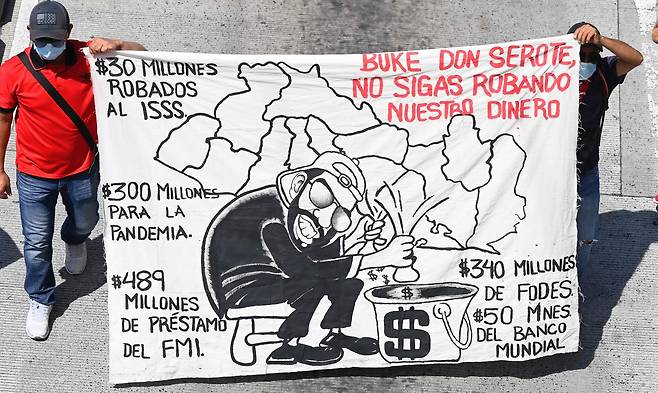 $30 MILLONES
ROBADOS
AL ISSS.
BUKE DON SEROTE,
NO SIGAS ROBANDO
NUESTRO DINERO
$300 MILLONES
PARA LA
PANDEMIA.
$489
MILLONES
DE PRÉSTAMO
DEL FMI.
$
$
$340 MILLONES
DE FODES.
$50 MNES.
DEL BANCO
MUNDIAL